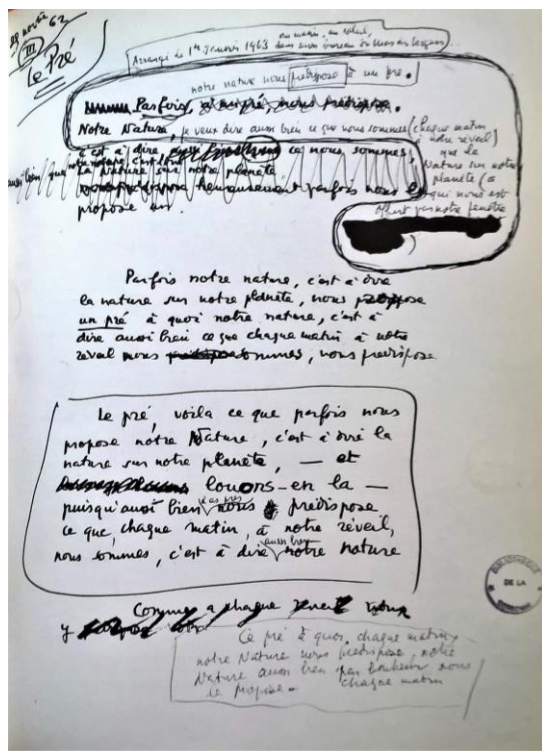 29 nov. 62
III
Le Pré
1er Janvier 1963 dans mon bureau
au matin, au soleil,
notre nature nous prédispose à un pré.
Parfois, nous prédispose.
Notre Nature, je veux dire aussi bien ce que nous sommes (chaque matin
à notre réveil)
c'est à dire ce nous sommes,
que la
Nature sur notre
aussi bien que
la Nature sur notre planète
planète (à
heureusement parfois nous le
qui nous est
propose un.
offert par notre fenêtre
Parfois notre nature, c'est à dire
la nature sur notre planète, nous propose
un pré à quoi notre nature, c'est à
dire aussi bien ce que chaque matin à notre
réveil nous sommes, nous prédispose
Le pré, voila ce que parfois nous
propose notre Nature, c'est à dire la
nature sur notre planète, — et
louons-en la —
puisqu'aussi bien nous prédispose
ce que, chaque matin, à notre réveil,
aussi bien
nous sommes, c'est à dire notre nature
BIBLIOTHÈQUE
DE LA
Comme a chaque réveil
y
Ce pré à quoi, chaque matin,
notre Nature nous prédispose, notre
Nature aussi bien par bonheur nous
le propose. chaque matin